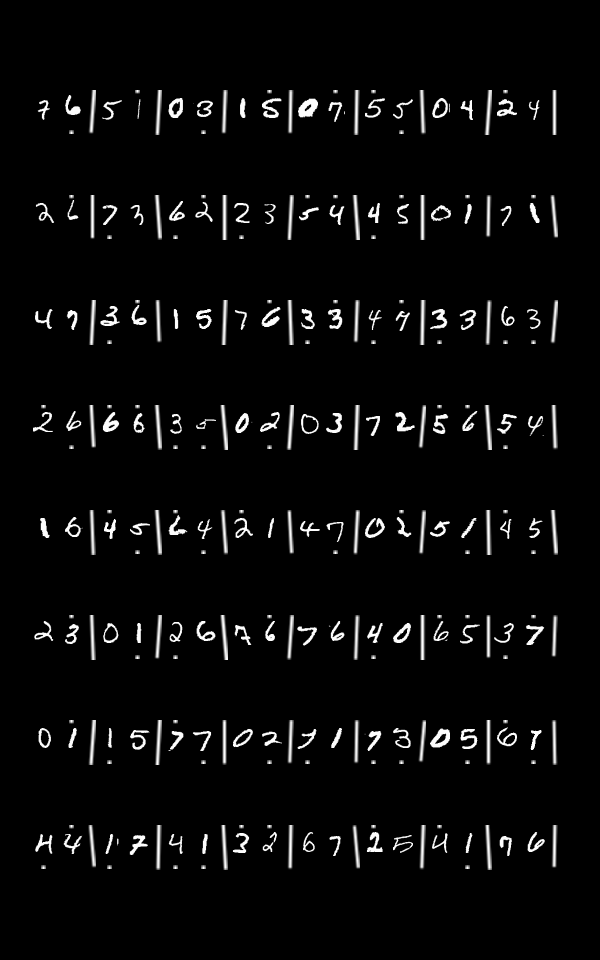 7 6 | 5 1 | 0 3 | 1 5 | 0 7 | 5 5 | 0 4 | 2 4 |
2 6 | 7 3 | 6 2 | 2 3 | 5 4 | 4 5 | 0 1 | 7 1 |
4 7 | 3 6 | 1 5 | 7 6 | 3 3 | 4 7 | 3 3 | 6 3 |
2 6 | 6 6 | 3 5 | 0 2 | 0 3 | 7 2 | 5 6 | 5 4 |
1 6 | 4 5 | 6 4 | 2 1 | 4 7 | 0 2 | 5 1 | 4 5 |
2 3 | 0 1 | 2 6 | 7 6 | 7 6 | 4 0 | 6 5 | 3 7 |
0 1 | 1 5 | 7 7 | 0 2 | 7 1 | 7 3 | 0 5 | 6 7 |
4 4 | 1 7 | 4 1 | 3 2 | 6 7 | 2 5 | 4 1 | 7 6 |